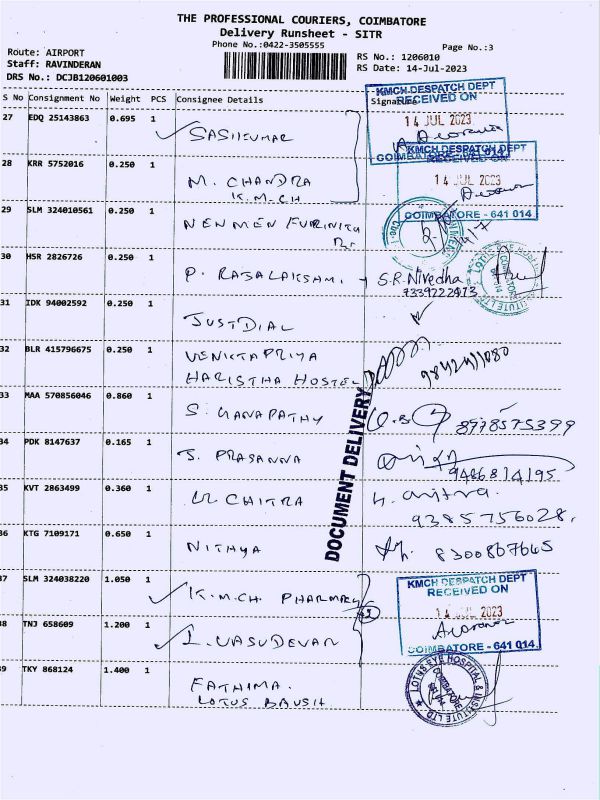 THE PROFESSIONAL COURIERS, COIMBATORE
Delivery Runsheet - SITR
Phone No.:0422-3505555
Page No.:3
Route: AIRPORT
Staff: RAVINDERAN
DRS No.: DCJB120601003
RS No.: 1206010
RS Date: 14-Jul-2023
S No Consignment No Weight PCS Consignee Details Signature
27 EDQ 25143863 0.695 1 SASIKUMAR
KMCH DESPATCH DEPT
RECEIVED ON
14 JUL 2023
COIMBATORE - 641 014
28 KRR 5752016 0.250 1 M. CHANDRA
K.M.CH
KMCH DESPATCH DEPT
RECEIVED ON
14 JUL 2023
COIMBATORE - 641 014
29 SLM 324010561 0.250 1
30 HSR 2826726 0.250 1 P. RAJALAKSHMI
S.R. Nivedha
7339222473
LOTUS EYE HOSPITAL & INSTITUTE LTD
COIMBATORE
31 IDK 94002592 0.250 1 JUSTDIAL
32 BLR 415796675 0.250 1 VENKTAPRIYA
HARISTHA HOSTEL
33 MAA 570856046 0.860 1 S. GANAPATHY
8978575399
34 PDK 8147637 0.165 1 S. PRASANNA
9486814195
35 KVT 2863499 0.360 1 CHITRA
9385756028.
36 KTG 7109171 0.650 1 NITHYA
8300867665
DOCUMENT DELIVERY
37 SLM 324038220 1.050 1 K.M.CH PHARMACY
38 TNJ 658609 1.200 1 I. VASUDEVAN
KMCH DESPATCH DEPT
RECEIVED ON
14 JUL 2023
COIMBATORE - 641 014
39 TKY 868124 1.400 1 FATHIMA.
LOTUS
LOTUS EYE HOSPITAL & INSTITUTE LTD
COIMBATORE